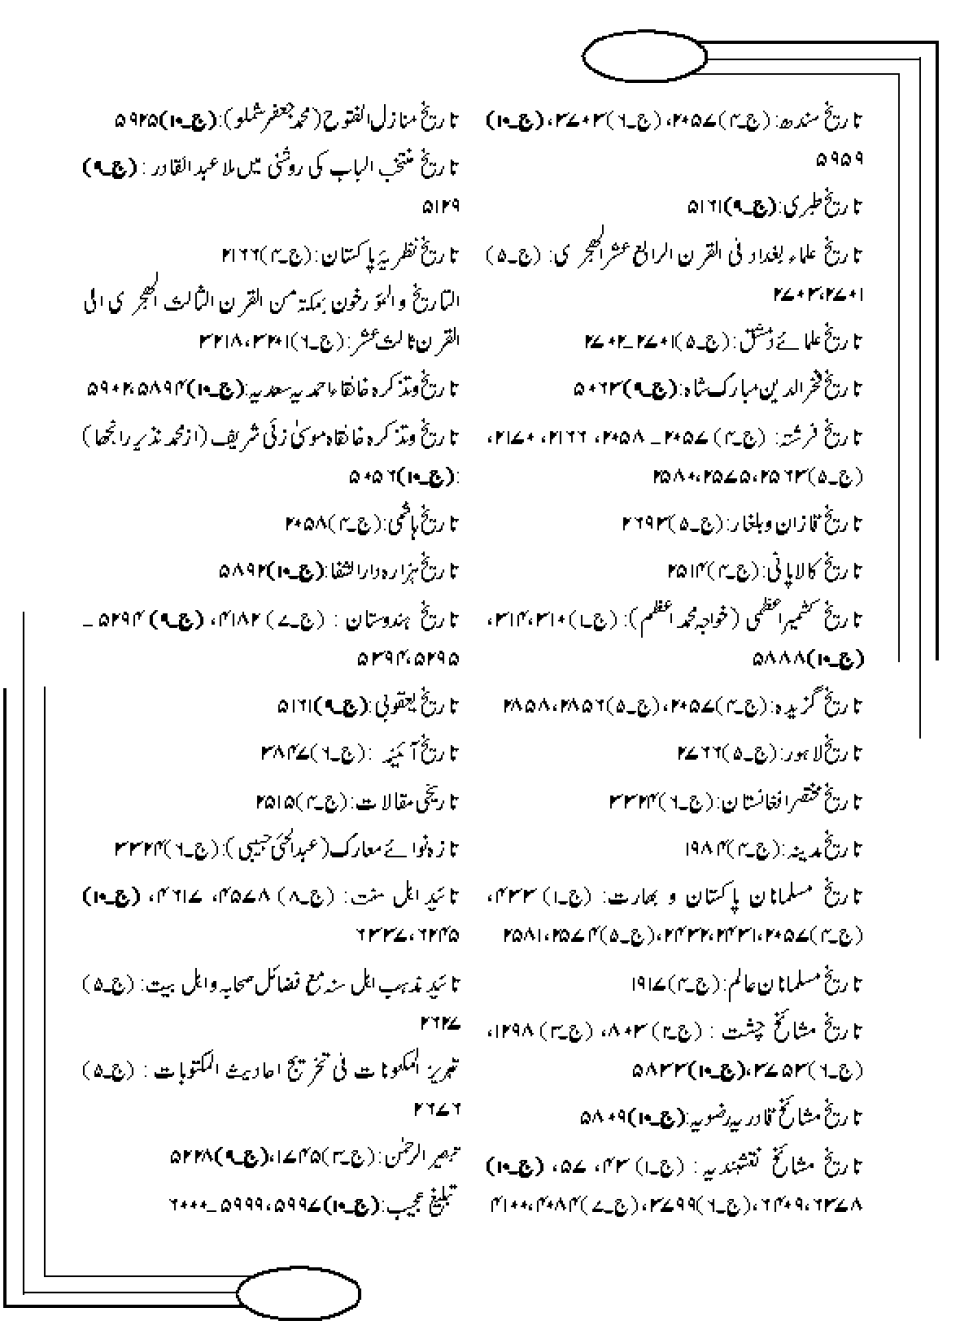 تاریخ سندھ: (ج۔۴) ۲۰۵۷، (ج۔۶) ۳۷۰۳، (ج۔۱۰)
۵۹۵۹
تاریخ طبری: (ج۔۹) ۵۱۶۱
تاریخ علماء بغداد فی القرن الرابع عشر الھجری: (ج۔۵)
۲۷۰۱، ۲۷۰۳
تاریخ علمائے دمشق: (ج۔۵) ۲۷۰۱۔۲۷۰۲
تاریخ فخر الدین مبارک شاہ: (ج۔۹) ۵۰۶۳
تاریخ فرشتہ: (ج۔۴) ۲۰۵۷۔ ۲۰۵۸، ۲۱۶۶، ۲۱۷۰،
(ج۔۵) ۲۵۶۳، ۲۵۷۵، ۲۵۸۰
تاریخ قازان وبلغار: (ج۔۵) ۲۶۹۳
تاریخ کالاپانی: (ج۔۴) ۲۵۱۴
تاریخ کشمیر اعظمی (خواجہ محمد اعظم): (ج۔۱) ۳۱۰، ۳۱۴،
(ج۔۱۰) ۵۸۸۸
تاریخ گزیدہ: (ج۔۴) ۲۰۵۷، (ج۔۵) ۲۸۵۶، ۲۸۵۸
تاریخ لاہور: (ج۔۵) ۲۷۶۶
تاریخ مختصر افغانستان: (ج۔۶) ۳۳۲۴
تاریخ مدینہ: (ج۔۴) ۱۹۸۴
تاریخ مسلمانان پاکستان و بھارت: (ج۔۱) ۴۳۳،
(ج۔۴) ۲۰۵۷، ۲۴۳۱، ۲۴۳۲، (ج۔۵) ۲۵۷۴، ۲۵۸۱
تاریخ مسلمانان عالم: (ج۔۴) ۱۹۱۷
تاریخ مشائخ چشت : (ج۔۲) ۸۰۳، (ج۔۳) ۱۲۹۸،
(ج۔۶) ۳۷۵۳، (ج۔۱۰) ۵۸۳۳
تاریخ مشائخ قادریہ رضویہ: (ج۔۱۰) ۵۸۰۹
تاریخ مشائخ نقشبندیہ : (ج۔۱) ۴۳، ۵۷، (ج۔۱۰)
۶۳۷۸، ۶۴۰۹، (ج۔۶) ۳۷۹۹، (ج۔۷) ۴۰۸۴، ۴۱۰۰
تاریخ منازل الفتوح (محمد جعفر شملو): (ج۔۱۰) ۵۹۲۵
تاریخ منتخب الباب کی روشنی میں ملا عبد القادر : (ج۔۹)
۵۱۲۹
تاریخ نظریۂ پاکستان: (ج۔۴) ۲۱۶۶
التاریخ والمؤرخون بمکۃ من القرن الثالث الھجری الی
القرن ثالث عشر: (ج۔۶) ۳۲۰۱، ۳۲۱۸
تاریخ وتذکرہ خانقاہ احمدیہ سعدیہ: (ج۔۱۰) ۵۸۹۴، ۵۹۰۲
تاریخ وتذکرہ خانقاہ موسیٰ زئی شریف (از محمد نذیر رانجھا)
: (ج۔۱۰) ۵۰۵۶
تاریخ ہاشمی: (ج۔۴) ۲۰۵۸
تاریخ ہزارہ دارالشفا: (ج۔۱۰) ۵۸۹۲
تاریخ ہندوستان : (ج۔۷) ۴۱۸۲، (ج۔۹) ۵۲۹۴۔
۵۲۹۵، ۵۳۹۴
تاریخ یعقوبی: (ج۔۹) ۵۱۶۱
تاریخ آئینہ : (ج۔۶) ۳۸۴۷
تاریخی مقالات: (ج۔۴) ۲۵۱۵
تازہ نوائے معارک (عبدالحئی حبیبی): (ج۔۶) ۳۳۲۴
تائید اہل سنت: (ج۔۸) ۴۵۷۸، ۴۶۱۷، (ج۔۱۰)
۶۲۴۵، ۶۳۳۷
تائید مذہب اہل سنہ مع فضائل صحابہ واہل بیت: (ج۔۵)
۲۶۲۷
تبریز المکنونات فی تخریج احادیث المکتوبات : (ج۔۵)
۲۶۷۶
تبصیر الرحمٰن: (ج۔۳) ۱۷۴۵، (ج۔۹) ۵۲۲۸
تبلیغ عجیب: (ج۔۱۰) ۵۹۹۷، ۵۹۹۹۔ ۶۰۰۰